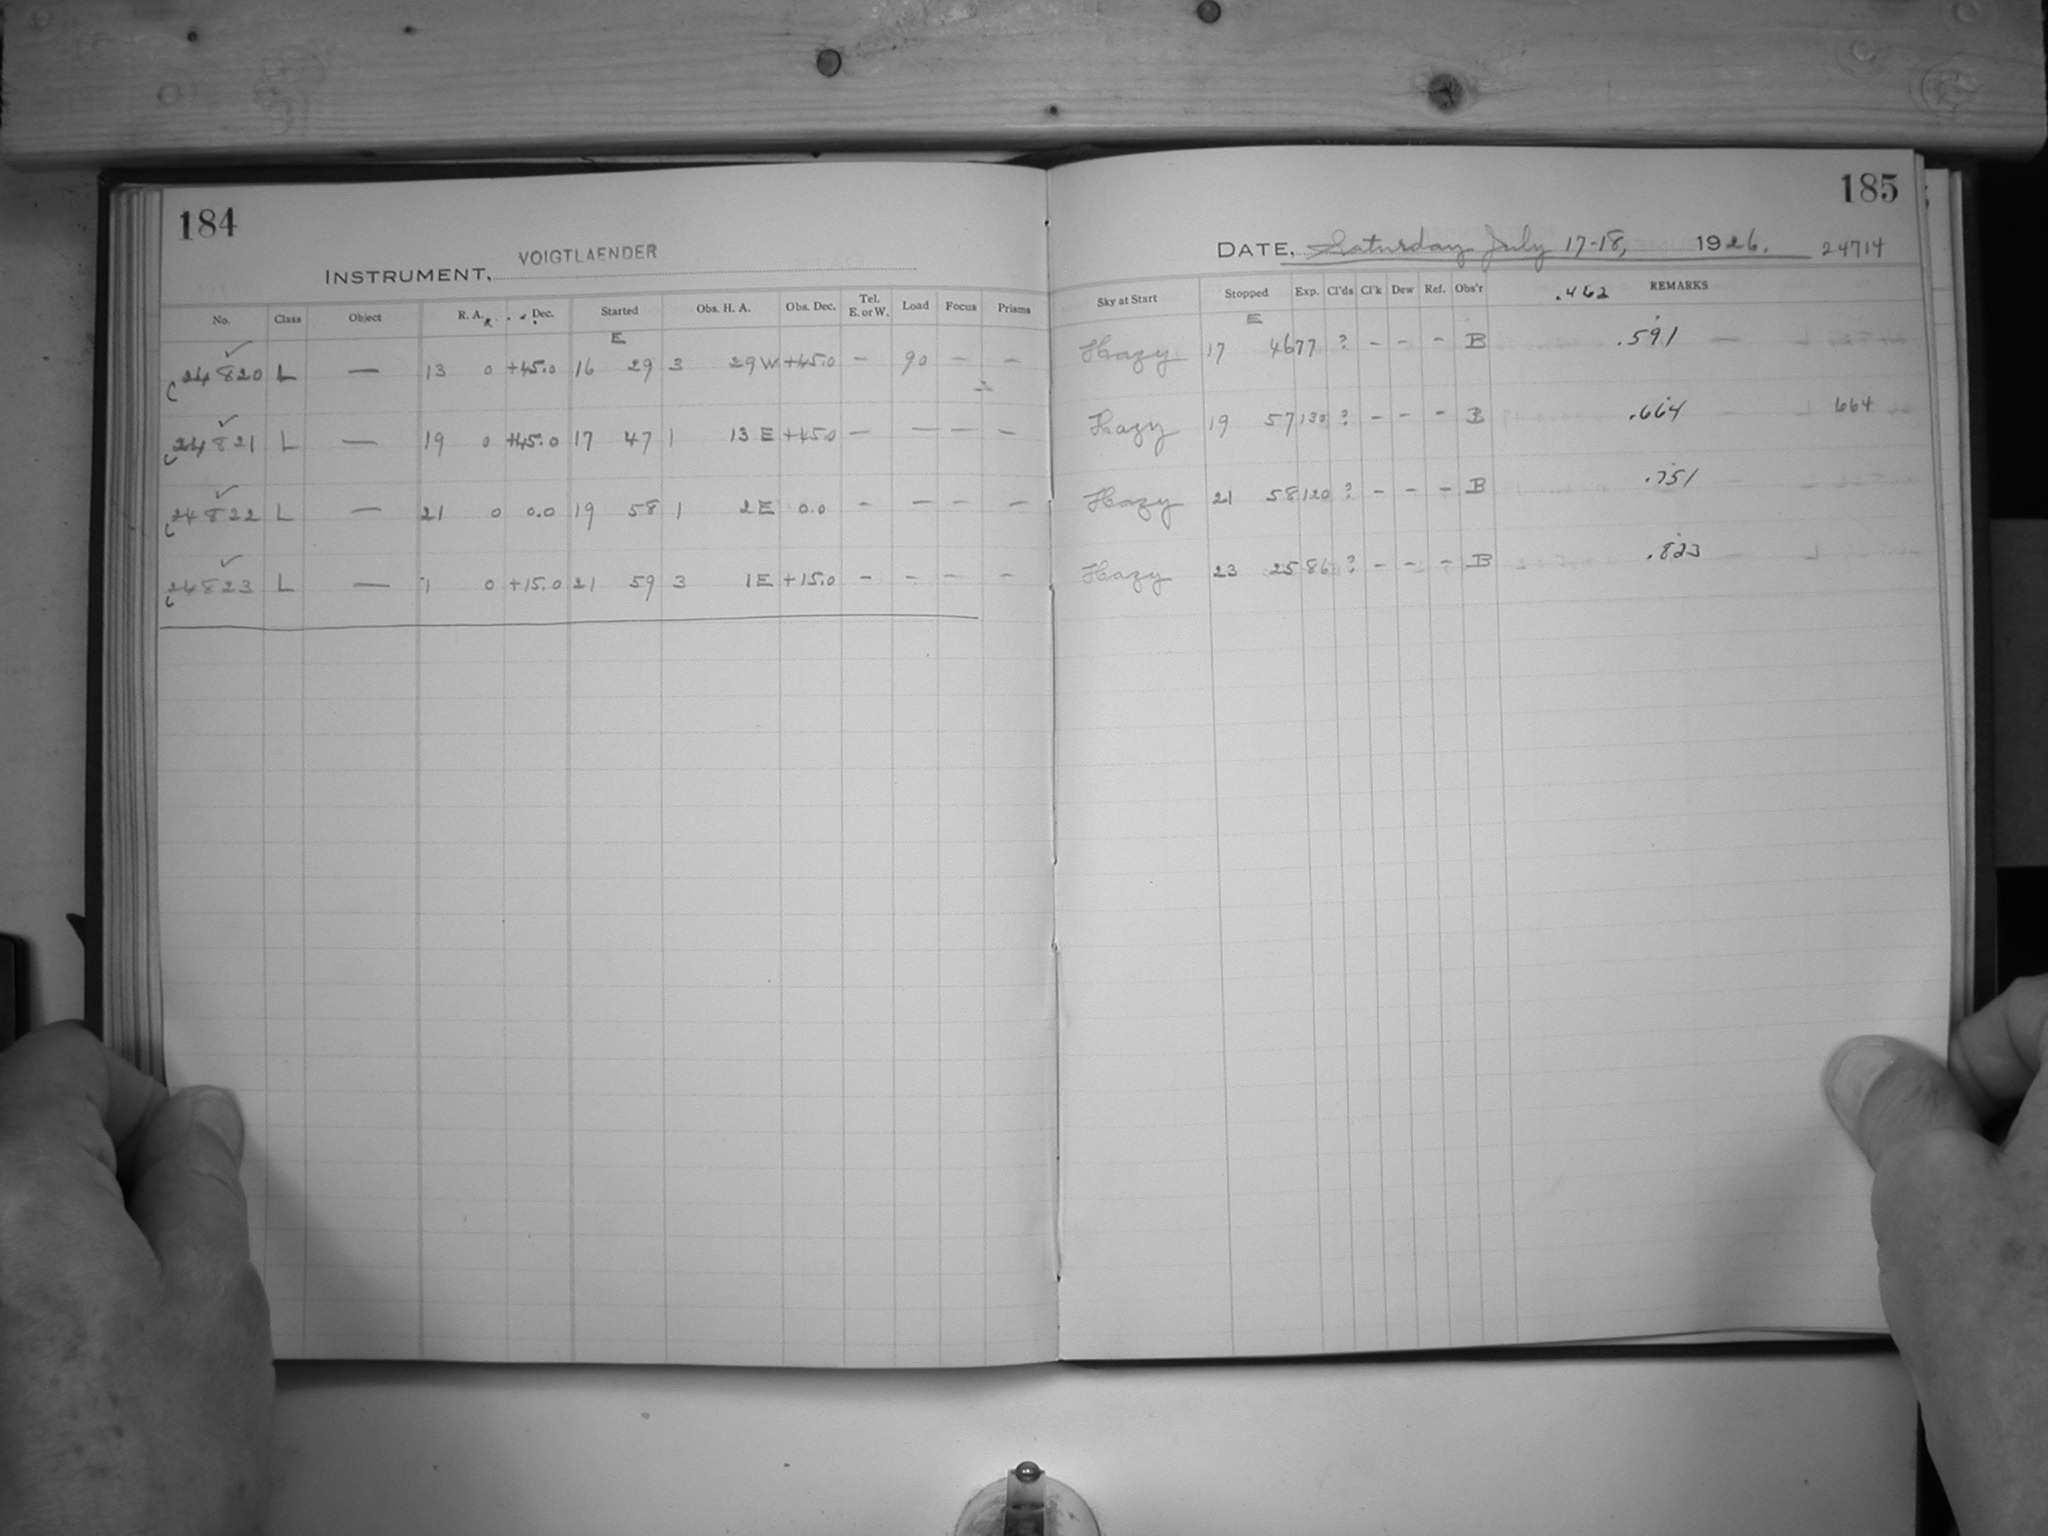 184
INSTRUMENT, VOIGTLAENDER
No. Class Object R. A. Dec. Started Obs. H. A. Obs. Dec. Tel. E. or W. Load Focus Prisms
E
24820 L — 13 0 +45.0 16 29 3 29 W +45.0 – 90 – –
24821 L — 19 0 +45.0 17 47 1 13 E +45.0 – – – –
24822 L — 21 0 0.0 19 58 1 2 E 0.0 – – – –
24823 L — 1 0 +15.0 21 59 3 1 E +15.0 – – – –
185
DATE, Saturday July 17-18, 1926. 24714
Sky at Start Stopped Exp. Cl'ds Cl'k Dew Ref. Obs'r .462 REMARKS
E
Hazy 17 46 77 ? – – – B .591
Hazy 19 57 130 ? – – – B .664 664
Hazy 21 58 120 ? – – – B .751
Hazy 23 25 86 ? – – – B .823